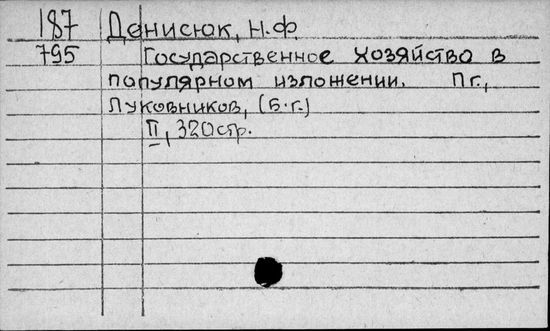 187 Денисюк, Н.Ф.
795 Государственное хозяйство в
популярном изложении. Пг.,
Луковников, (б.г.)
II, 320стр.